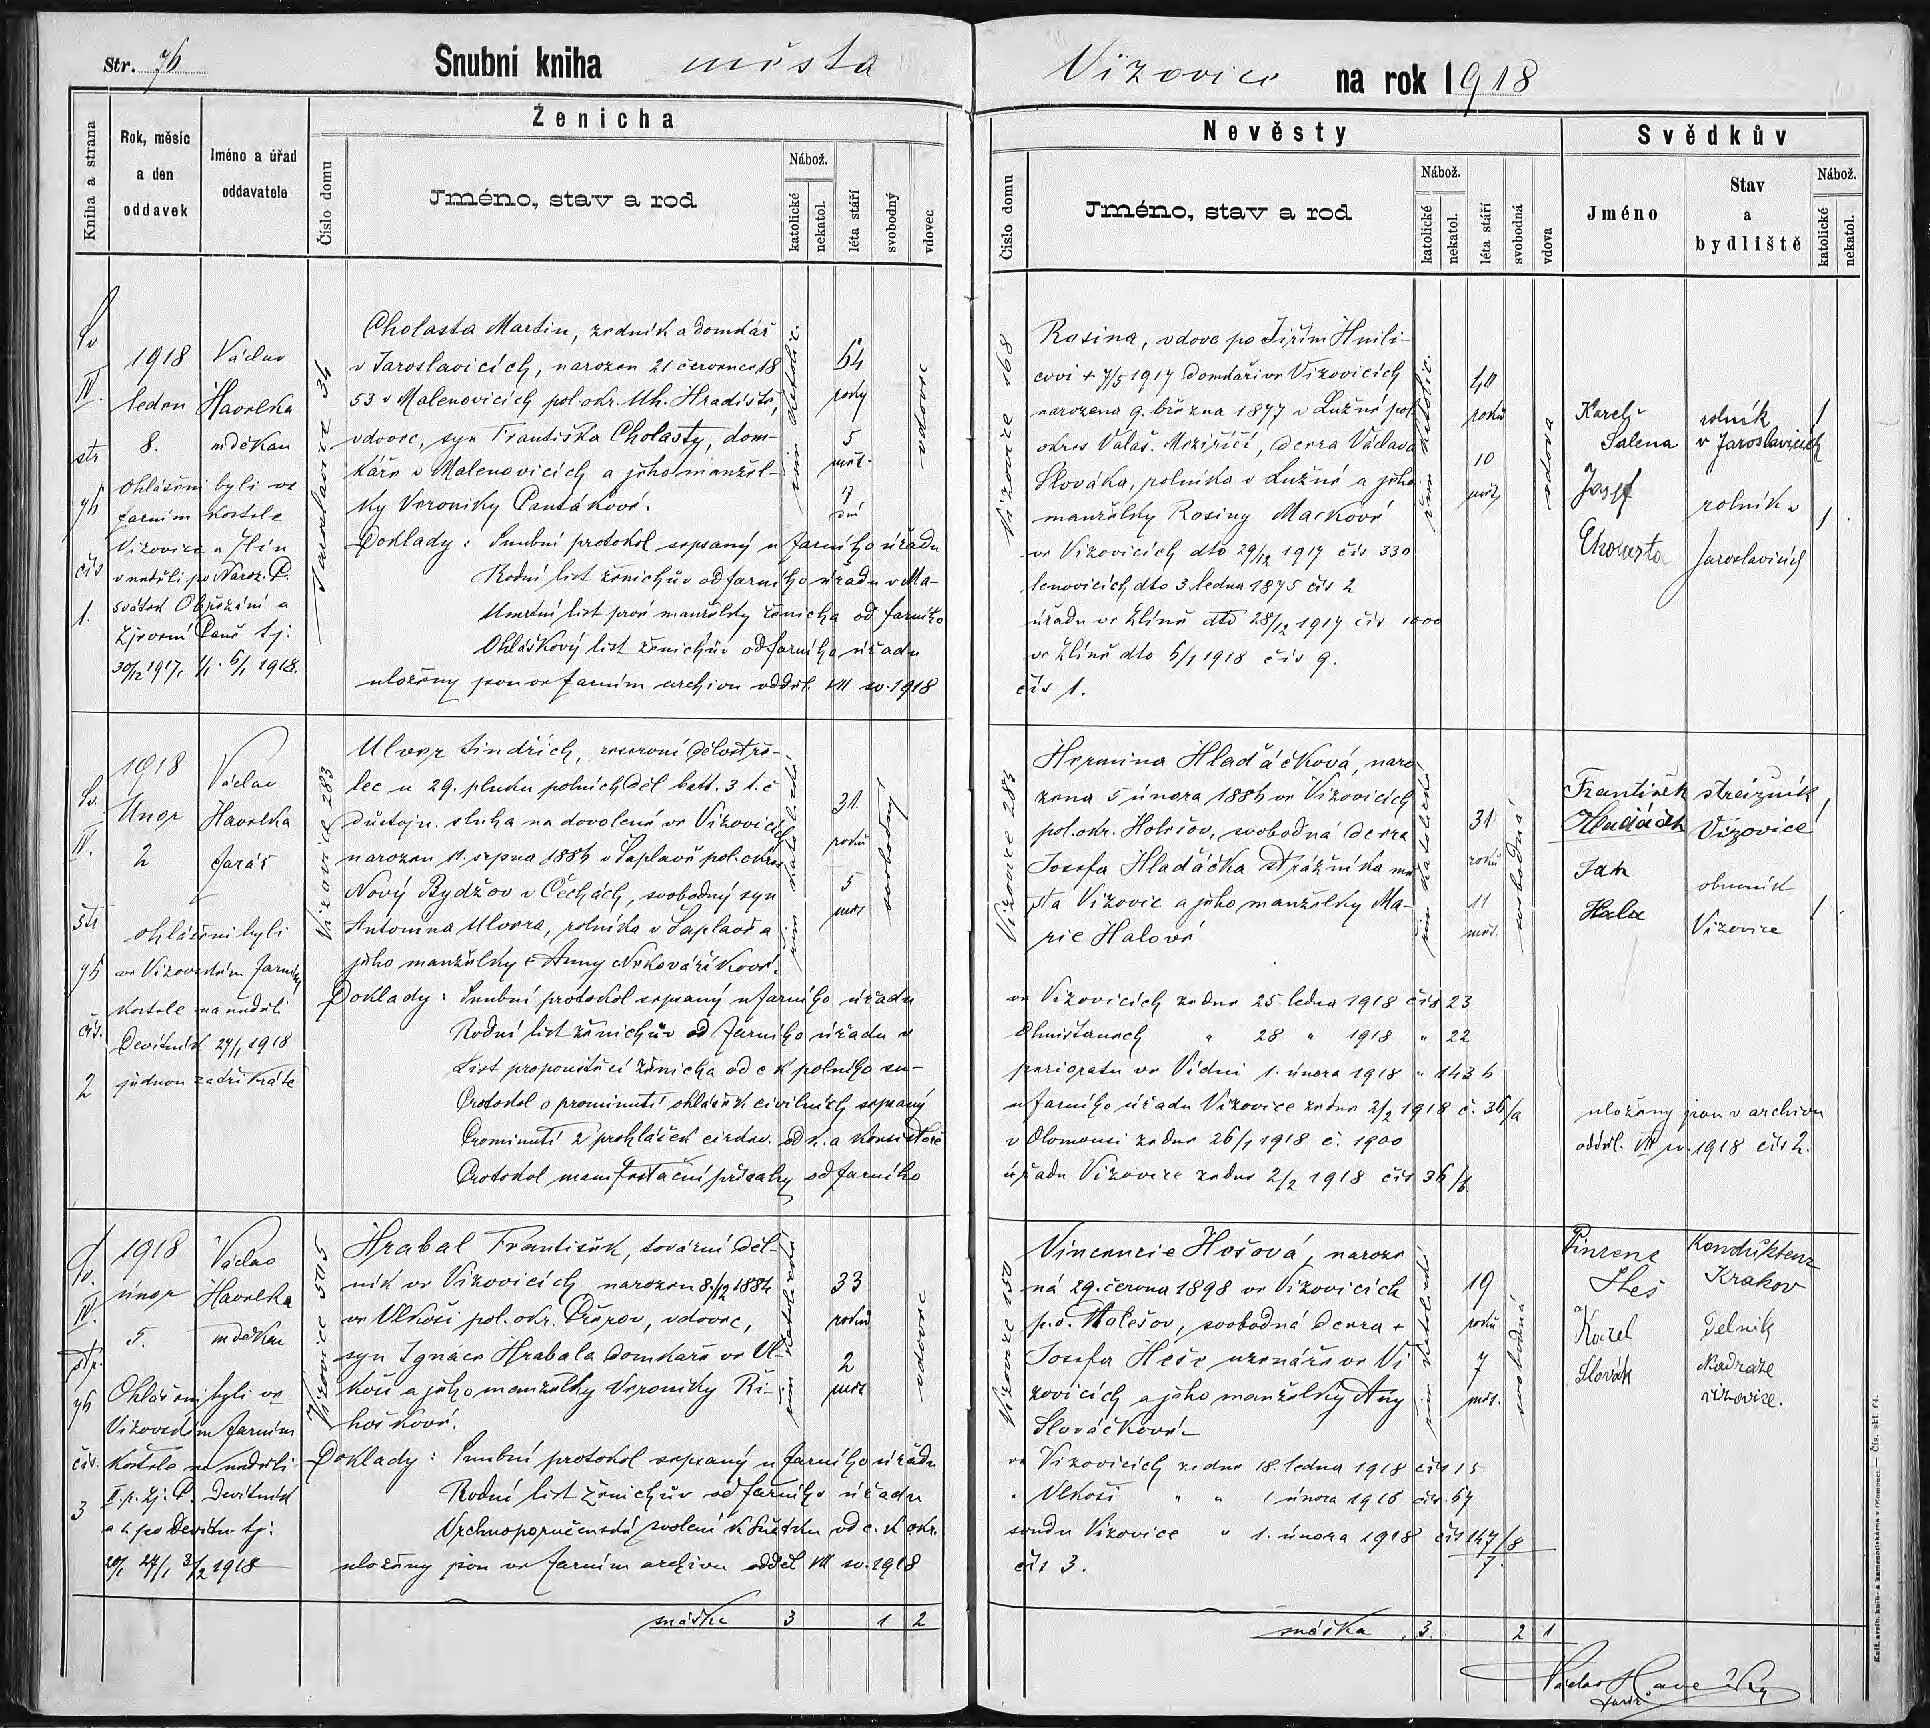 Str. 76
Snubní kniha města
Vizovice na rok 1918
Ženicha
Kniha a strana
Rok, měsíc
a den
oddavek
Jméno a úřad
oddavatele
Číslo domu
Jméno, stav a rod
Nábož.
katolické
nekatol.
léta stáří
svobodný
vdovec
Nevěsty
Číslo domu
Jméno, stav a rod
Nábož.
katolické
nekatol.
léta stáří
svobodná
vdova
Svědkův
Jméno
Stav
a
bydliště
Nábož.
katolické
nekatol.
Sv
IV.
str
76
čís
1.
1918
leden
8.
Václav
Havelka
m děkan
Ohlášeni byli ve
farním kostele
Vizovice a Zlín
v neděli po Naroz. P.
svátek Obřezání a
Zjevení Páně tj:
30/12 1917, 1/1 6/1 1918.
Jaroslavice 34
Cholasta Martin, zedník a domkář
v Jaroslavicích, narozen 21 července 18
53 v Malenovicích pol. okr. Uh. Hradiště,
vdovec, syn Františka Cholasty, dom-
káře v Malenovicích a jeho manžel-
ky Veroniky Pantákové.
řím katolic.
64
roky
5
měs.
17
dní
vdovec
Doklady: Snubní protokol sepsaný u farního úřadu
Rodní list ženichův od farního úřadu v Ma-
Úmrtní list prvé manželky ženicha od farního
Ohláškový list ženichův od farního úřadu
uloženy jsou ve farním archivu odděl. VII sv. 1918
Vizovice 168
Rosina, vdova po Jiřím Hnili-
covi + 7/5 1917 domkáři ve Vizovicích
narozena 9. března 1877 v Lužné pol.
okres Valaš. Meziříčí, dcera Václava
Slováka, rolníka v Lužné a jeho
manželky Rosiny Mackové
řím katolic.
40
roků
10
měs.
vdova
ve Vizovicích dto 29/12 1917 čís 330
lenovicích, dto 3 ledna 1875 čís 2
úřadu ve Zlíně dto 28/12 1917 čís 1000
ve Zlíně dto 6/1 1918 čís 9.
čís 1.
Karel
Salena
rolník
v Jaroslavicích
Josef
Cholasta
rolník v
Jaroslavicích
Sv.
IV.
str
76
čís.
2
1918
Únor
2
Václav
Havelka
farář
ohlášeni byli
ve Vizovském farním
kostele na neděli
Devítník 27/1 1918
jednou za tři kráte
Vizovice 283
Ulver Jindřich, reservní dělostře-
lec u 29. pluku polních děl batt. 3 t. č
důstojn. sluha na dovolené ve Vizovicích
narozen 11. srpna 1886 v Šaplavě pol. okres
Nový Bydžov v Čechách, svobodný syn
Antonína Ulvera, rolníka v Šaplavě a
jeho manželky Anny
řím katolické
31.
roků
5
měs
svobodný
Doklady: Snubní protokol sepsaný u farního úřadu
Rodní list ženichův od farního úřadu v
List propouštěcí ženicha od c k polního su-
Protokol o prominutí ohlášek civilních sepsaný
Prominutí 2 prohlášek církev. od k. a konsistoře
Protokol manifestační přísahy od farního
Vizovice 283
Hermina Hlaďáčková, naro
zena 5 února 1886 ve Vizovicích
pol. okr. Holešov, svobodná dcera
Josefa Hlaďáčka strážníka mě
sta Vizovic a jeho manželky Ma-
rie Halové
řím katolické
31
roků
11
měs.
svobodná
ve Vizovicích ze dne 25 ledna 1918 čís 23
Chuišťanech " 28 " 1918 " 22
periorátu ve Vídni 1. února 1918 " 1436
u farního úřadu Vizovice ze dne 2/2 1918 č. 36/a
v Olomouci ze dne 26/1 1918 č. 1900
úřadu Vizovice ze dne 2/2 1918 čís 36/b
František
Hlaďáček
strážník
Vizovice
Jan
Hala
obuvník
Vizovice
uloženy jsou v archivu
odděl. VII sv. 1918 čís 2.
Sv.
IV.
str.
76
čís.
3
1918
únor
5.
Václav
Havelka
m děkan
Ohlášeni byli ve
Vizovském farním
kostele na neděli
II. p. Zj: P. Devítník
a 1. po Devítn tj:
20/1 27/1 3/2 1918
Vizovice 505
Hrabal František, tovární děl-
ník ve Vizovicích narozen 8./12 1884
ve Vlkoši pol. okr. Přerov, vdovec,
syn Ignáce Hrabala domkaře ve Vl-
koši a jeho manželky Veroniky Ři-
hoškové.
řím katolické
33
roků
2
měs
vdovec
Doklady: Snubní protokol sepsaný u farního úřadu
Rodní list ženichův od farního úřadu
Vrchnoporučenské svolení k sňatku od c. k okr.
uloženy jsou ve farním archivu odděl VII sv. 1918
Vizovice 150
Vincencie Hošová, naroze
ná 29. června 1898 ve Vizovicích
p. o. Holešov, svobodná dcera +
Josefa Heše uzenáře ve Vi
zovicích a jeho manželky Any
Slováčkové
řím katolické
19
roků
7
měs.
svobodná
ve Vizovicích ze dne 18. ledna 1918 čís 15
" Vlkoši " " 1 února 1918 čís. 64
soudu Vizovice " 1. února 1918 čís 147/8
7.
čís 3.
Vinzenc
Heš
Konduktenz
Krakov
Karel
Slovák
Dělnik
Nadraze
vizovice.
snáška 3 1 2
snáška 3. 2 1
Václav Havelka
farář